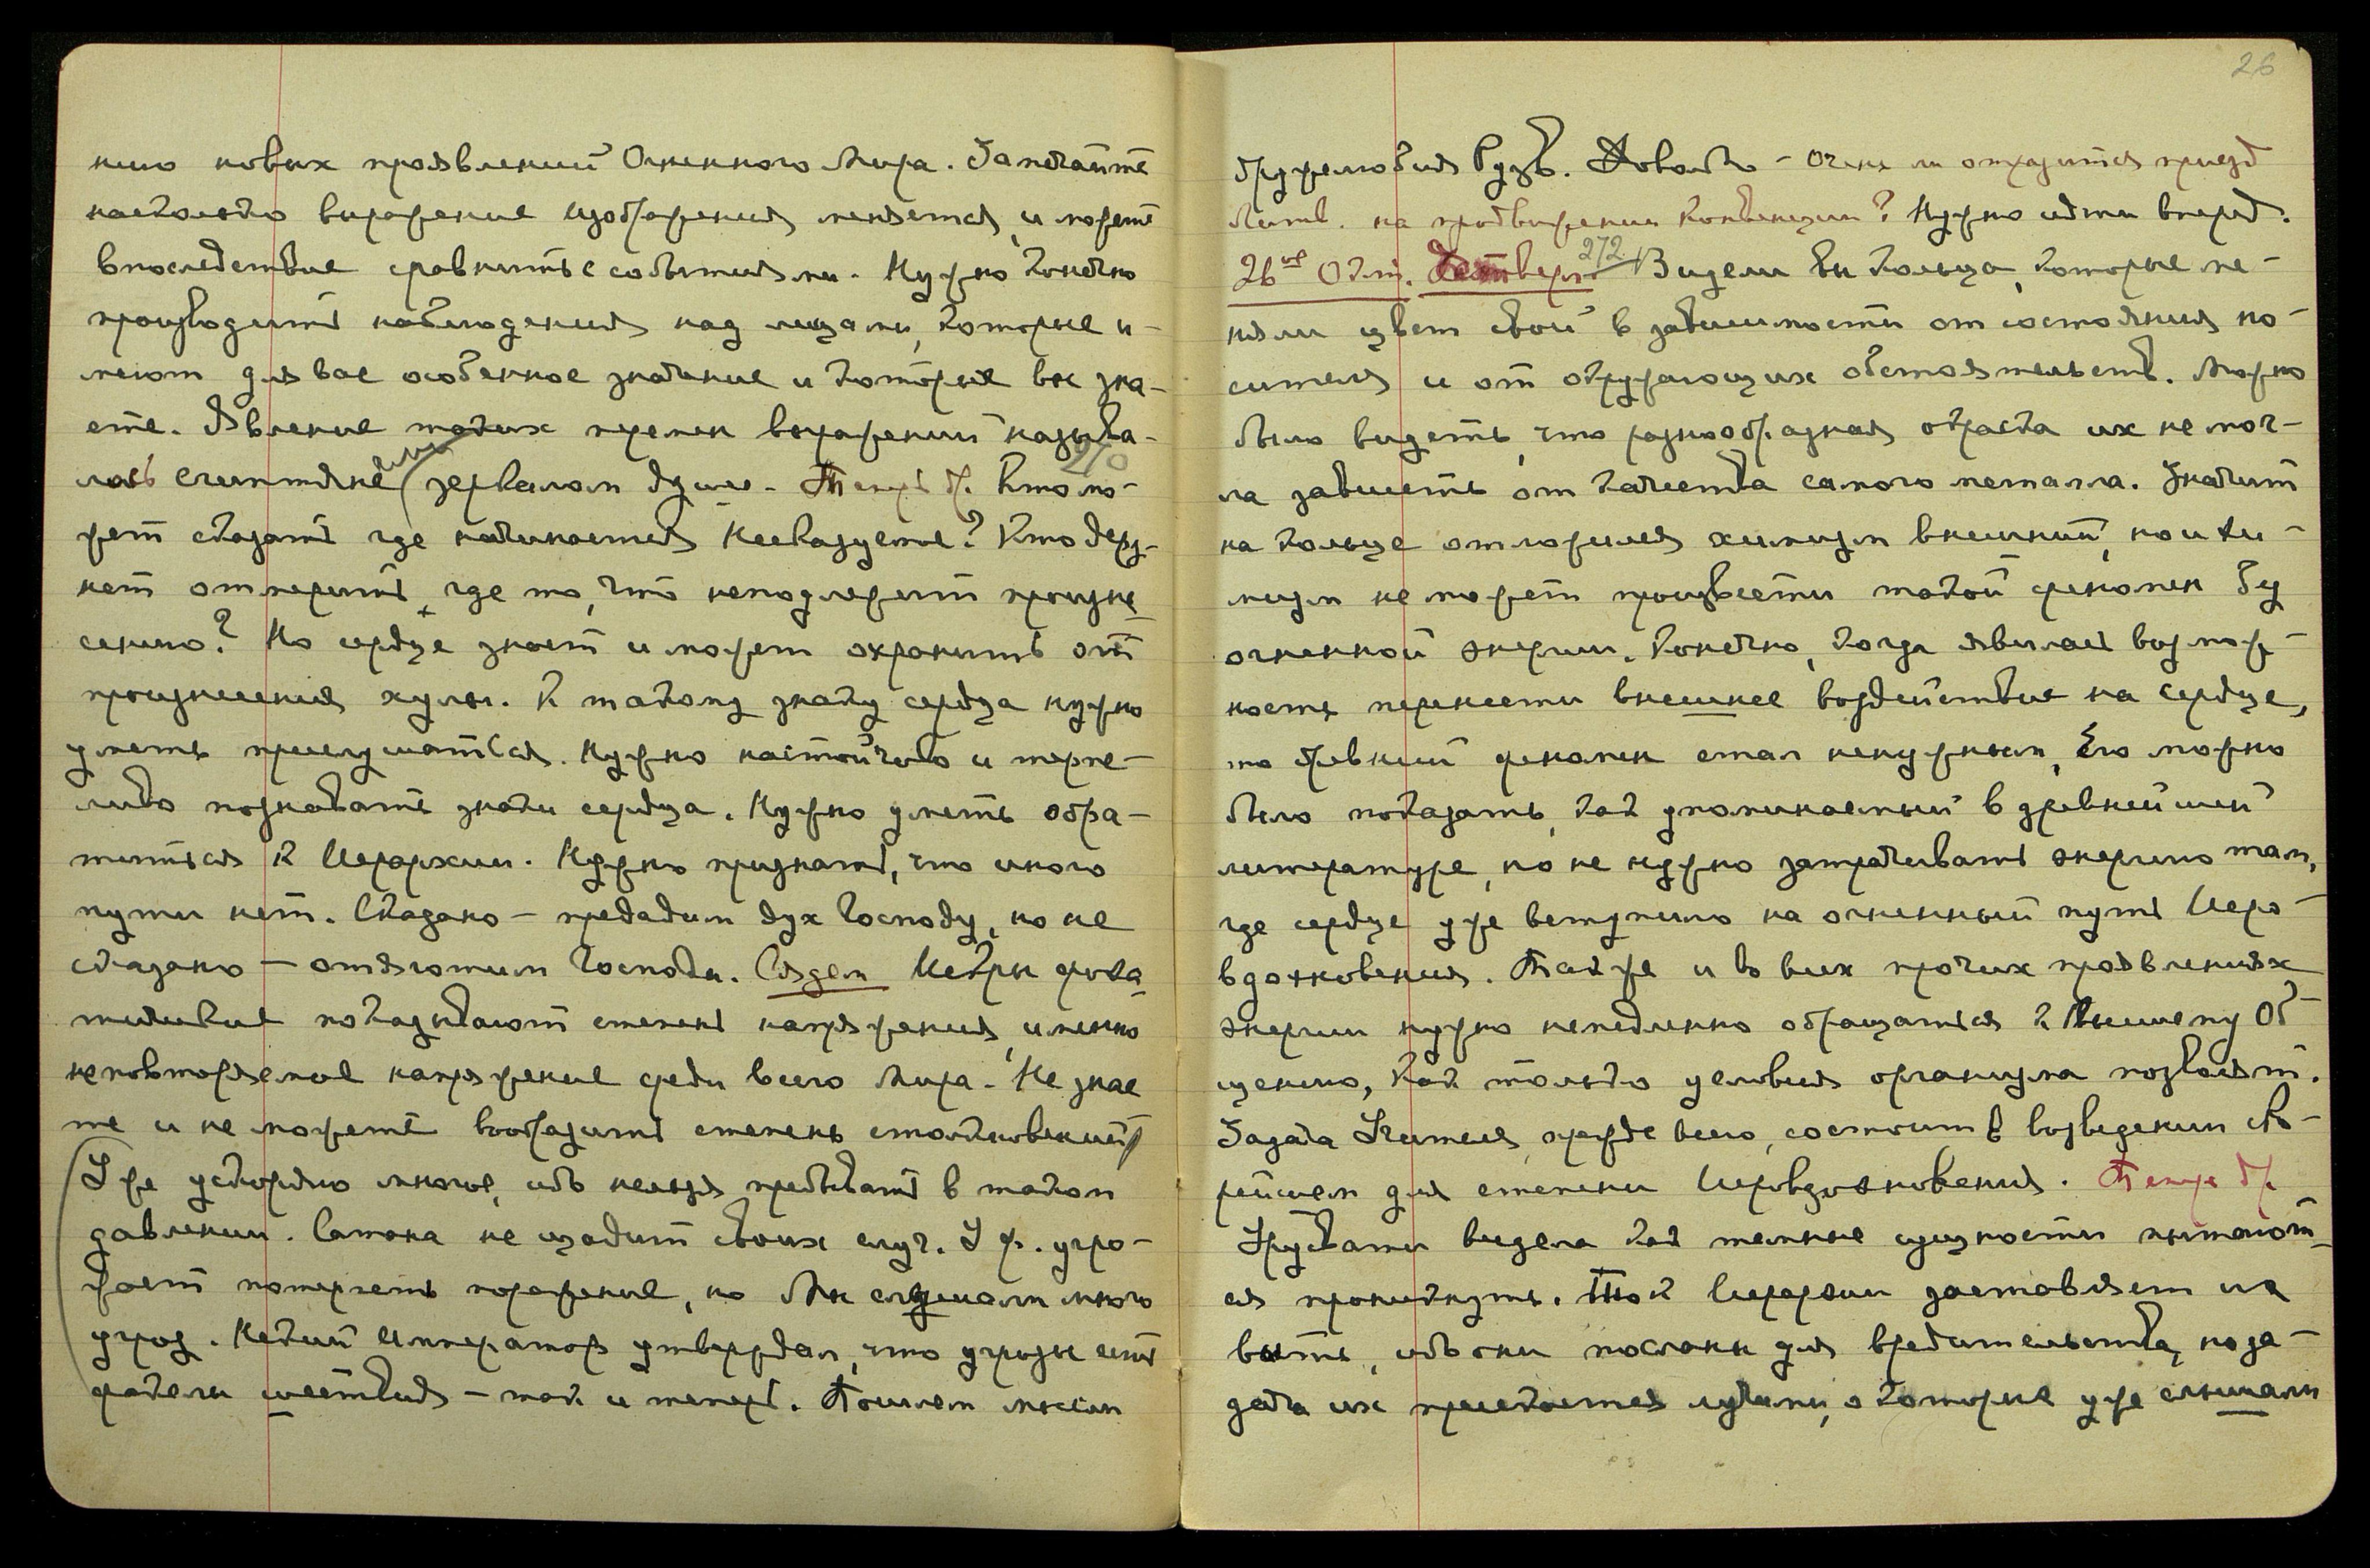 нию новых проявлений Огненного Мира. Замечайте
насколько выражение изображения меняется, и можете
впоследствие сравнить с событиями. Нужно конечно
производить наблюдения над лицами, которые и-
меют для вас особенное значение и которые вы зна-
ете. Явление таких перемен выражений называ-
лось египтяне зеркалом души. Теперь др. Кто мо-
жет сказать где начинается Несказуемое? Кто дерз-
нет отмерить, где то, что неподлежит произне-
сению? Но сердце знает и может охранить от
произнесения хулы. К такому знаку сердца нужно
уметь прислушаться. Нужно настойчиво и терпе-
ливо познавать знаки сердца. Нужно уметь обра-
титься к Иерархии. Нужно признать, что иного
пути нет. Сказано – предадим дух Господу, но не
сказано – отяготим Господа. Сядем Искры фоха-
тические показывают степень напряжения, именно
неповторяемое напряжение среди всего Мира. Не знае
те и не можете вообразить степень столкновений
Уже ускоряю многое, ибо нельзя пребывать в таком
давлении. Сатана не щадит своих слуг. У ф. угро-
жает потерпеть поражение, но Мы слышали много
угроз. Некий Император утверждал, что угрозы суть
факелы шествия – так и теперь. Пошлем мысли
26
дружелюбия Рузв. Довольно – Очень ли отразится приезд
Литв. на продвижении Конвенции? Нужно идти вперед.
26ое Окт. Четверг. 272 Видели вы кольца, которые ме-
няли цвет свой в зависимости от состояния но-
сителя и от окружающих обстоятельств. Можно
было видеть, что разнообразная окраска их не мог-
ла зависеть от качества самого металла. Значит
на кольце отложился химизм внешний, но и хи-
мизм не может произвести такой феномен без
огненной энергии. Конечно, когда явилась возмож-
ность перенести внешнее воздействие на сердце,
то древний феномен стал ненужным, Его можно
было показать, как упоминаемый в древнейшей
литературе, но не нужно затрачивать энергию там,
где сердце уже вступило на огненный путь Иеро-
вдохновения. Также и во всех прочих проявлениях
энергии нужно немедленно обращаться к Высшему Об-
щению, как только условия организма позволят.
Задача Учителя, прежде всего, состоит в возведении ско-
рейшем для степени Иеровдохновения. Теперь др.
Урусвати видела как темные сущности пытают-
ся проникнуть. Ток Иерархии заставляет их
выть, ибо они посланы для вредительства, но за-
дача их пресекается лучами, о которые уже слышали